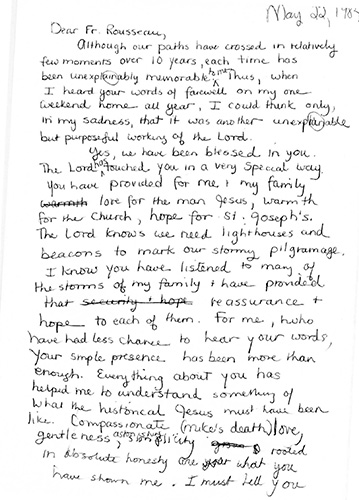 May 22, 198
Dear Fr. Rousseau,
Although our paths have crossed in relatively
few moments over 10 years, each time has
been unexplainably memorable to me. Thus, when
I heard your words of farewell on my one
weekend home all year, I could think only,
in my sadness, that it was another unexplainable
but purposeful working of the Lord.
Yes, we have been blessed in you.
The Lord has touched you in a very special way.
You have provided for me & my family
warmth love for the man Jesus, warmth
for the Church, hope for St. Joseph's.
The Lord knows we need lighthouses and
beacons to mark our stormy pilgramage.
I know you have listened to many of
the storms of my family & have provided
that security & hope reassurance +
hope to each of them. For me, who
have had less chance to hear your words,
your simple presence has been more than
enough. Everything about you has
helped me to understand something of
what the historical Jesus must have been
like. Compassionate (Mike's death) love,
gentleness, simplicity rooted
in absolute honesty are what you
have shown me. I must tell you